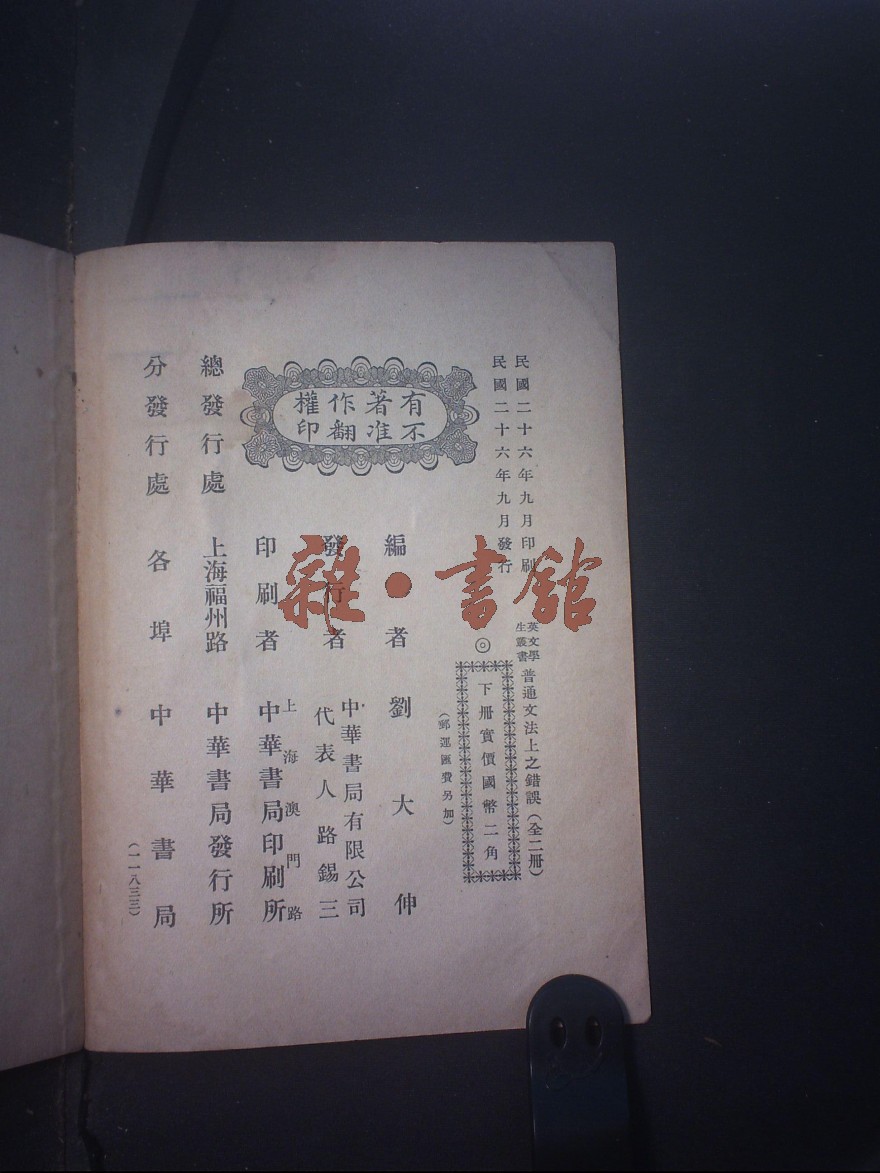 民國二十六年九月印刷
民國二十六年九月發行
英文學
生叢書
普通文法上之錯誤（全二冊）
◎
下冊實價國幣二角
（郵運匯費另加）
有著作權
不准翻印
編者 劉大伸
發行者 中華書局有限公司
代表人路錫三
印刷者 上海澳門路
中華書局印刷所
總發行處 上海福州路 中華書局發行所
分發行處 各埠中華書局
（一一八三三）
雜·書館